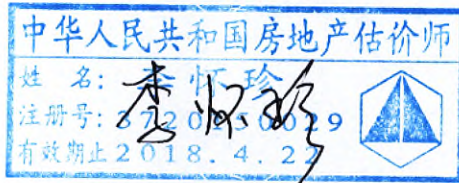 中华人民共和国房地产估价师
姓 名: 李怀珍
注册号: 3720130029
有效期止 2018.4.22
李怀珍